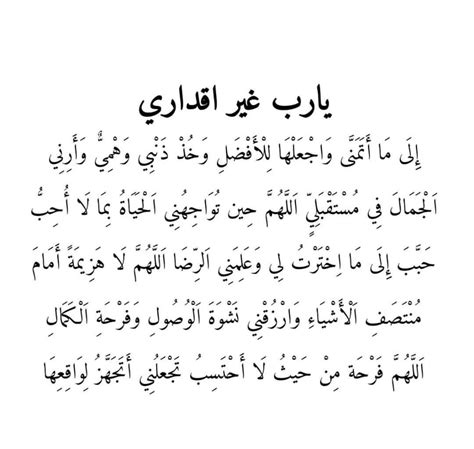 يارب غير اقداري
إِلَى مَا أَتَمَنَّى وَاجْعَلْهَا لِلْأَفْضَلِ وَخُذْ ذَنْبِي وَهْمِيٌّ وَأَرِنِي
اَلْجَمَالَ فِي مُسْتَقْبَلِيِّ اَللَّهُمَّ حِين تُوَاجِهُنِي اَلْحَيَاةُ بِمَا لَا أُحِبُّ
حَبَّبَ إِلَى مَا اِخْتَرْتُ لِي وَعَلِمَنِي اَلرِّضَا اَللَّهُمَّ لَا هَزِيمَةً أَمَامَ
مُنْتَصَفِ اَلْأَشْيَاءِ وَارْزُقْنِي نَشْوَةَ اَلْوُصُولِ وَفَرْحَةِ اَلْكَمَالِ
اَللَّهُمَّ فَرْحَة مِنْ حَيْثُ لَا أَحْتَسِبُ تَجْعَلُنِي أَتَجَهَّزُ لِوَاقِعِهَا